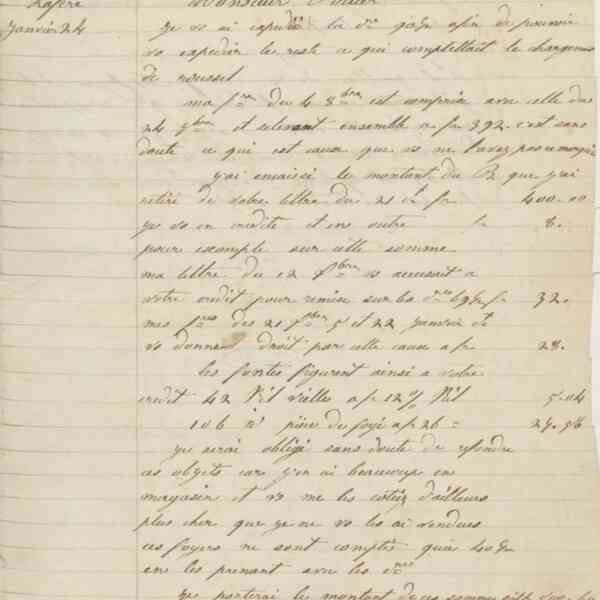 Lafère Monsieur
Janvier 24 Je vs ai expedié la afin de pouvoir
vs expedier le reste ce qui complettait le chargement
de roussel
ma fre du 4 8bre est comprise avec celle du
24 9bre et relevant ensemble a fr 392. c'est sans
doute ce qui est cause que vs ne l'avez pas remarqué
j'ai encaissé le montant du Bt que j'ai
retiré de votre lettre du 21 ct fr 400.00
je vs en credite et en outre fr 8.
pour escompte sur cette somme
ma lettre du 12 vs accusait a
votre credit pour remise sur les fr 32.
mes fres des 21 5 et 22 Janvier ct
vs donnent droit par cette cause a fr 28.
les fontes figurent ainsi a votre
credit 42 Kil vielle a fr 12 % Kil 5.04
106 id piece de foyé a fr 26 = 27.56
je serai obligé sans doute de refondre
ces objets car j'en ai beaucoup en
magasin et vs me les cotiez d'ailleurs
plus cher que je ne vs les ai vendues
ces foyers ne sont comptés qu'a
en les prenant avec les
je porterai le montant de ces